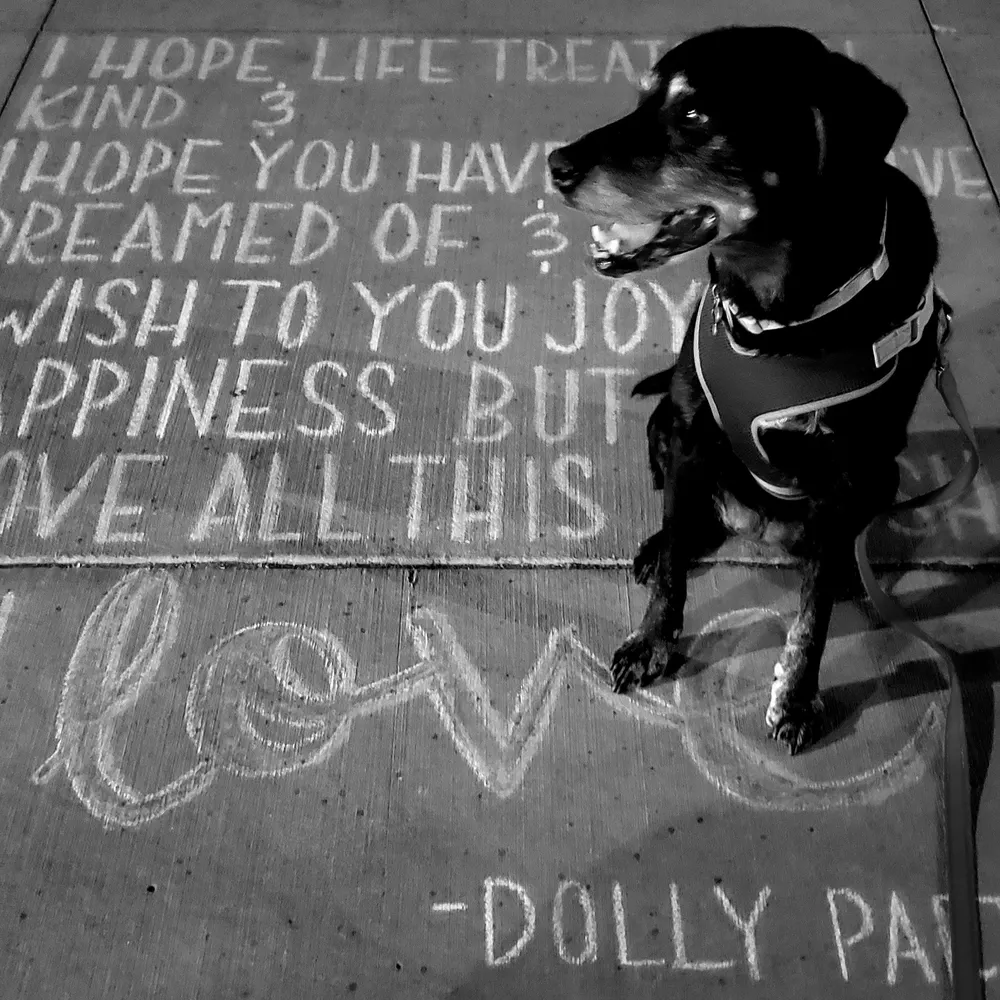 I HOPE LIFE TREAT
KIND &
I HOPE YOU HAVE 'VE
DREAMED OF &
WISH TO YOU JOY
PPINESS BUT
OVE ALL THIS
love
-DOLLY PAR